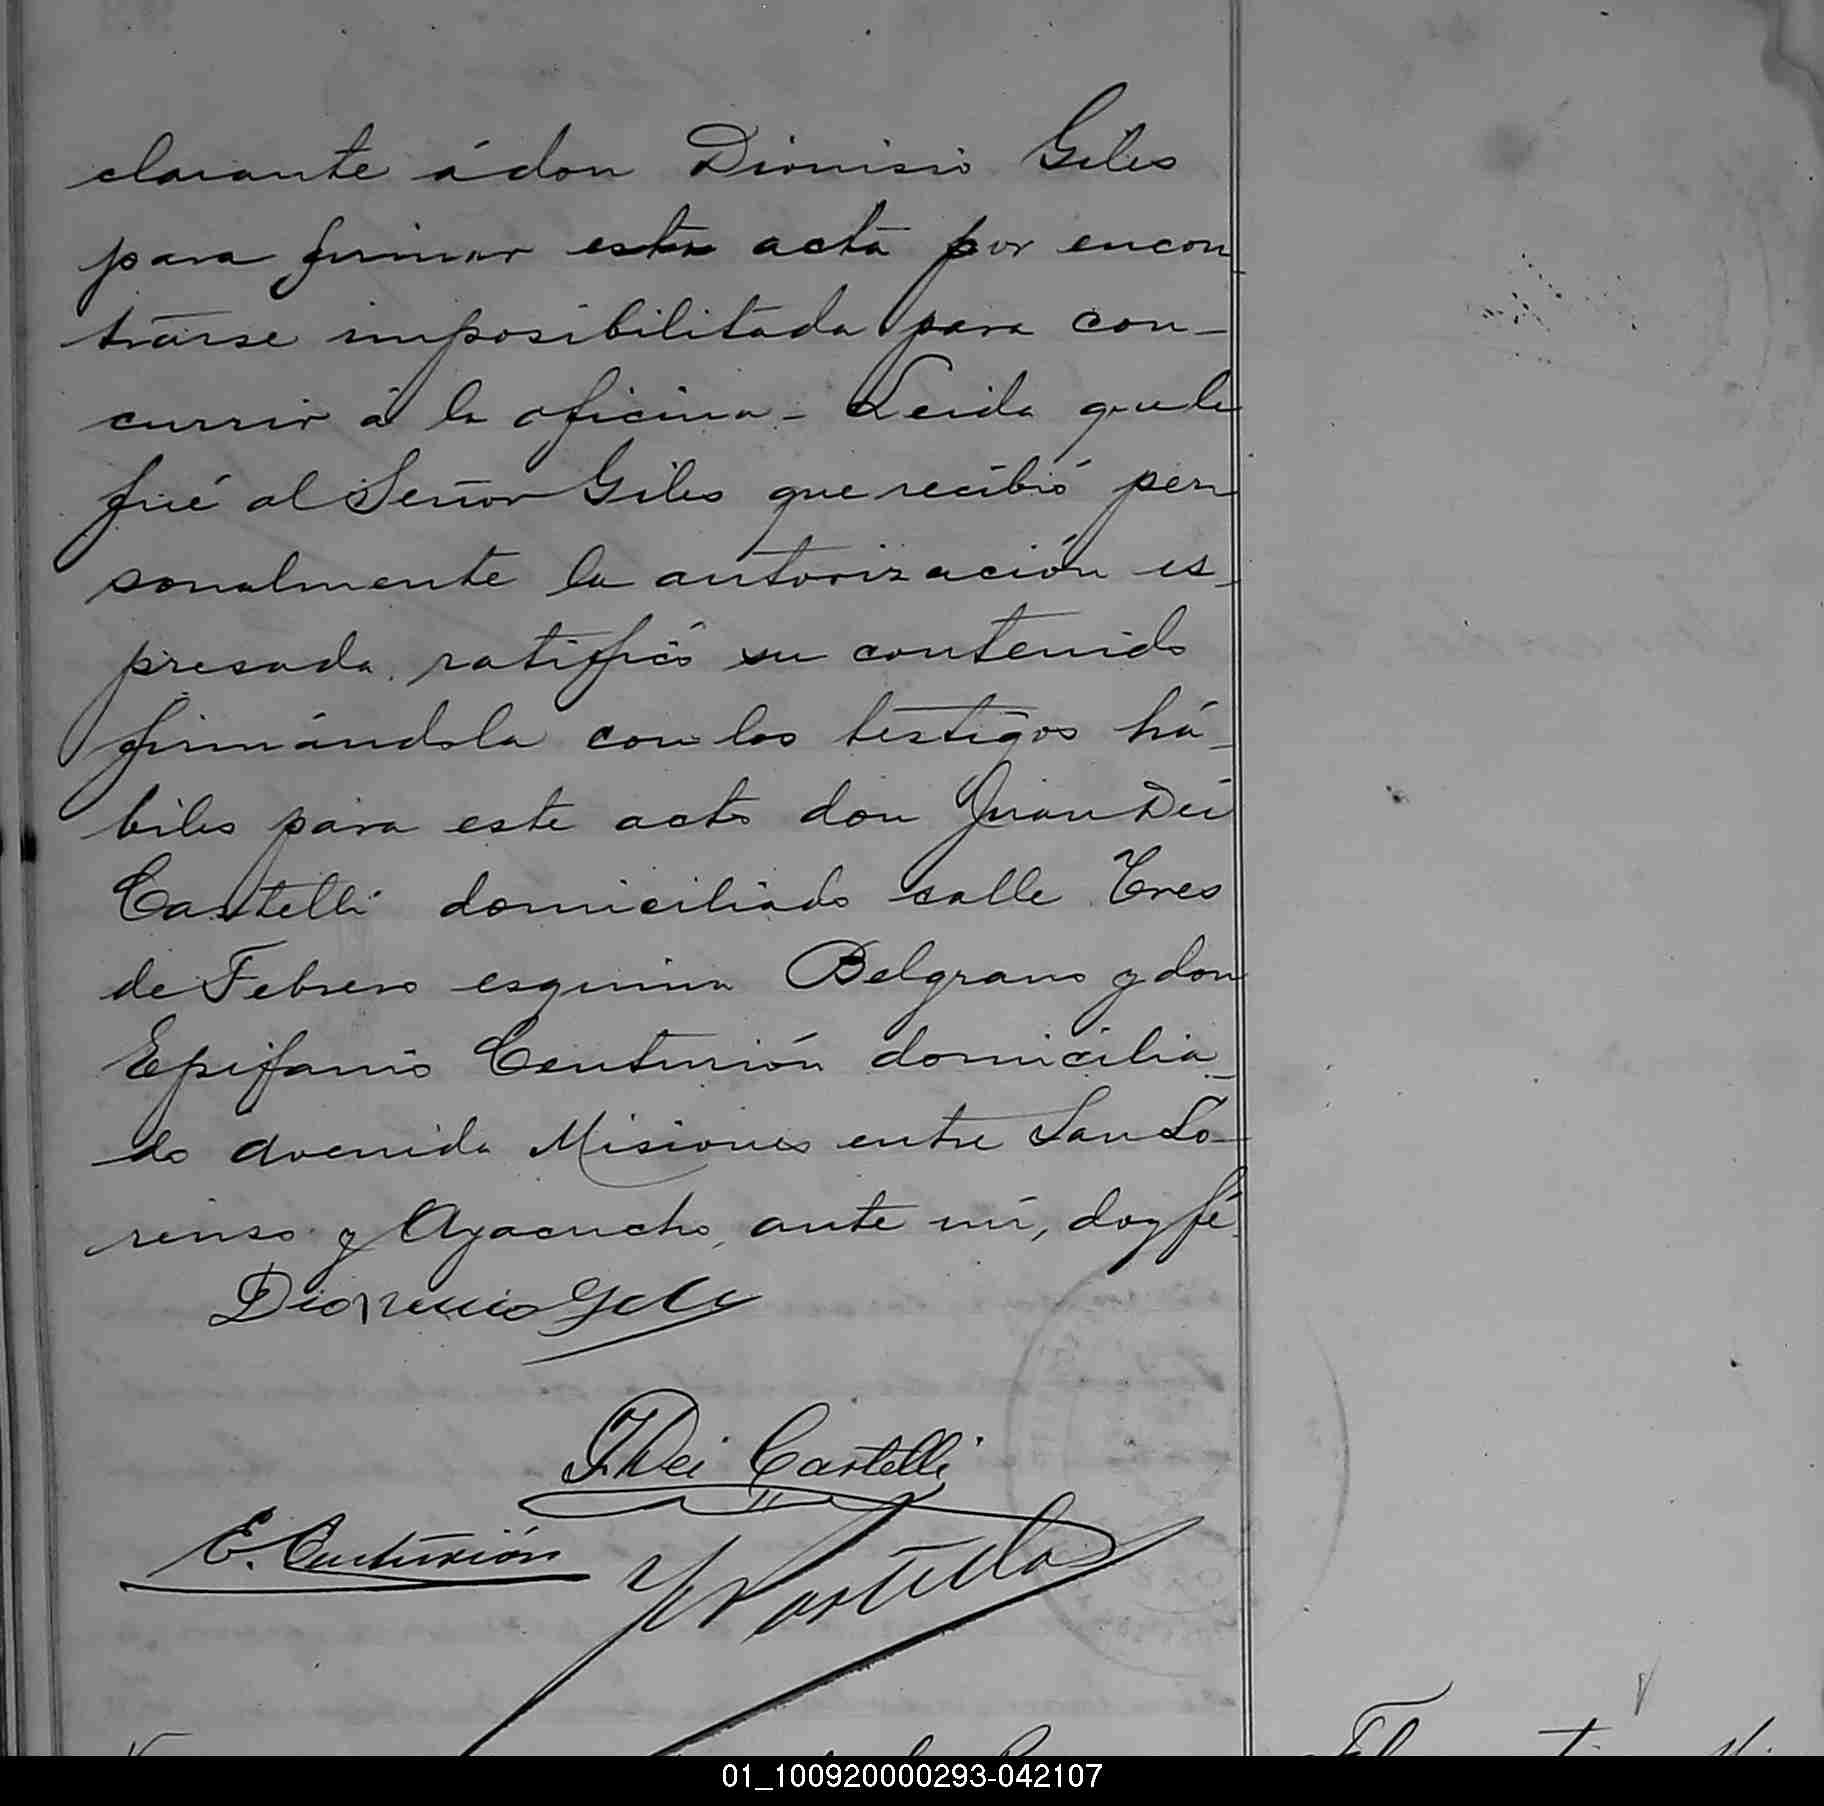 clarante á don Dionisio Giles
para firmar esta acta por encon
trarse imposibilitada para con-
currir á la oficina - Leida que le
fué al Señor Giles que recibió per
sonalmente la autorización es-
presada, ratificó su contenido
firmándola con los testigos há-
biles para este acto don Juan Dei
Castelli domiciliado calle Tres
de Febrero esquina Belgrano y don
Epifanio Centurión domicilia-
do avenida Misiones entre San Lo-
renso y Ayacucho, ante mí, doy fé.
Dionicio Giles
J. Dei Castelli
E. Centurión
01_100920000293-042107